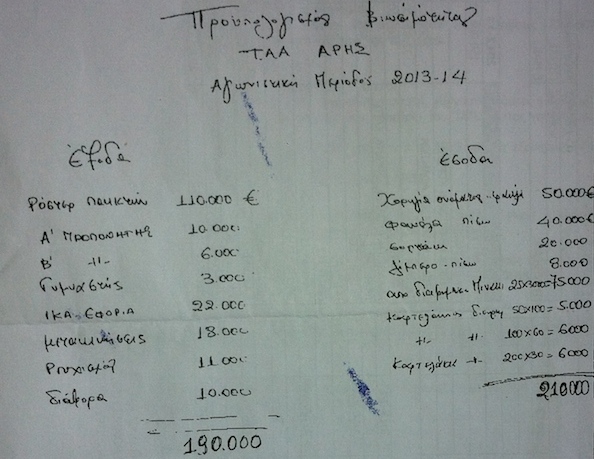 Προϋπολογισμός Βιωσιμότητας
ΤΑΑ ΑΡΗΣ
Αγωνιστική Περίοδος 2013-14
Έξοδα
Ρόστερ παικτών 110.000 €
Α' ΠΡΟΠΟΝΗΤΗΣ 10.000
Β' -//- 6.000
Γυμναστής 3.000
ΙΚΑ. ΕΦΟΡΙΑ 22.000
μετακινήσεις 18.000
Ρουχισμός 11.000
διάφορα 10.000
190.000
Έσοδα
Χορηγία 50.000€
φανέλα πίσω 40.000€
σορτσάκι 20.000
πίσω 8.000
απο 25x3000=75.000
50x100=5.000
-//- -//- 100x60=6000
200x30=6000
210000